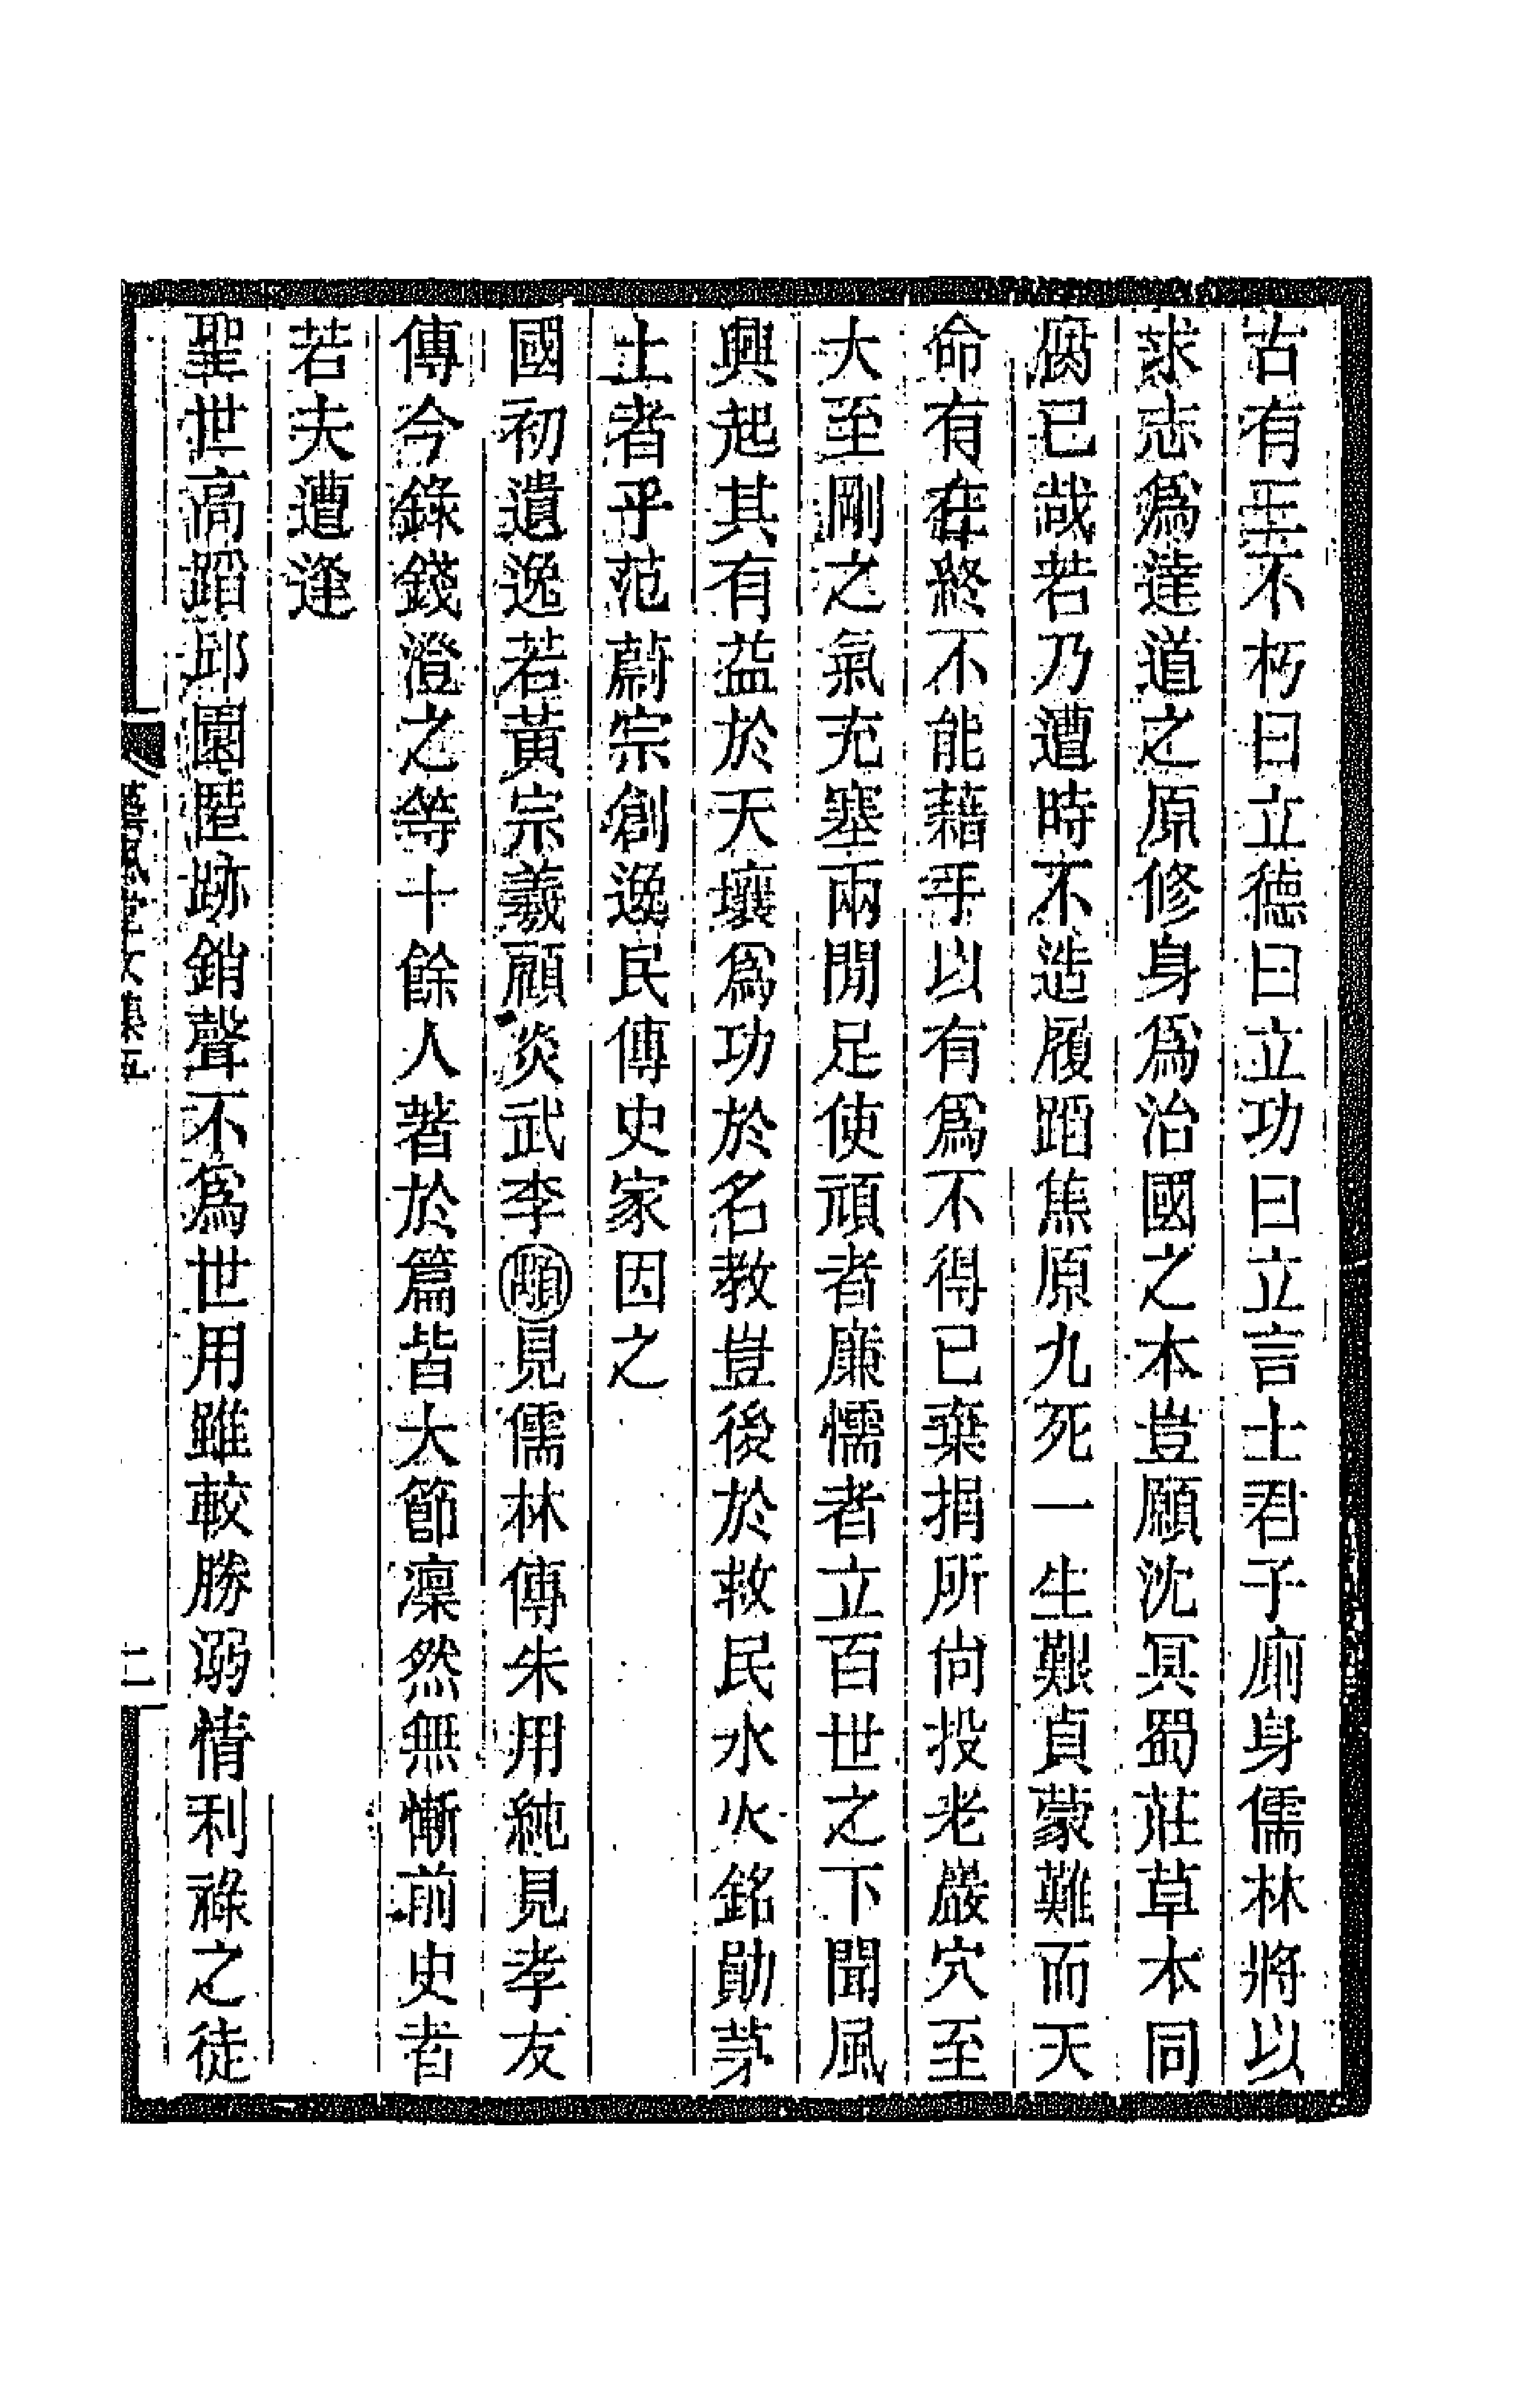 古有三不朽曰立德曰立功曰立言士君子廁身儒林將以
求志爲達道之原修身爲治國之本豈願沈冥蜀莊草本同
腐已哉若乃遭時不造履蹈焦原九死一生艱貞蒙難而天
命有在終不能藉手以有爲不得已棄捐所尙投老巖穴至
大至剛之氣充塞兩閒足使頑者廉懦者立百世之下聞風
興起其有益於天壤爲功於名教豈後於救民水火銘勛茅
土者乎范蔚宗創逸民傳史家因之
國初遺逸若黃宗羲顧炎武李顒見儒林傳朱用純見孝友
傳今錄錢澄之等十餘人著於篇皆大節凜然無慚前史者
若夫遭逢
聖世高蹈邱園歷跡銷聲不爲世用雖較勝溺情利祿之徒
藝風堂文集五
二